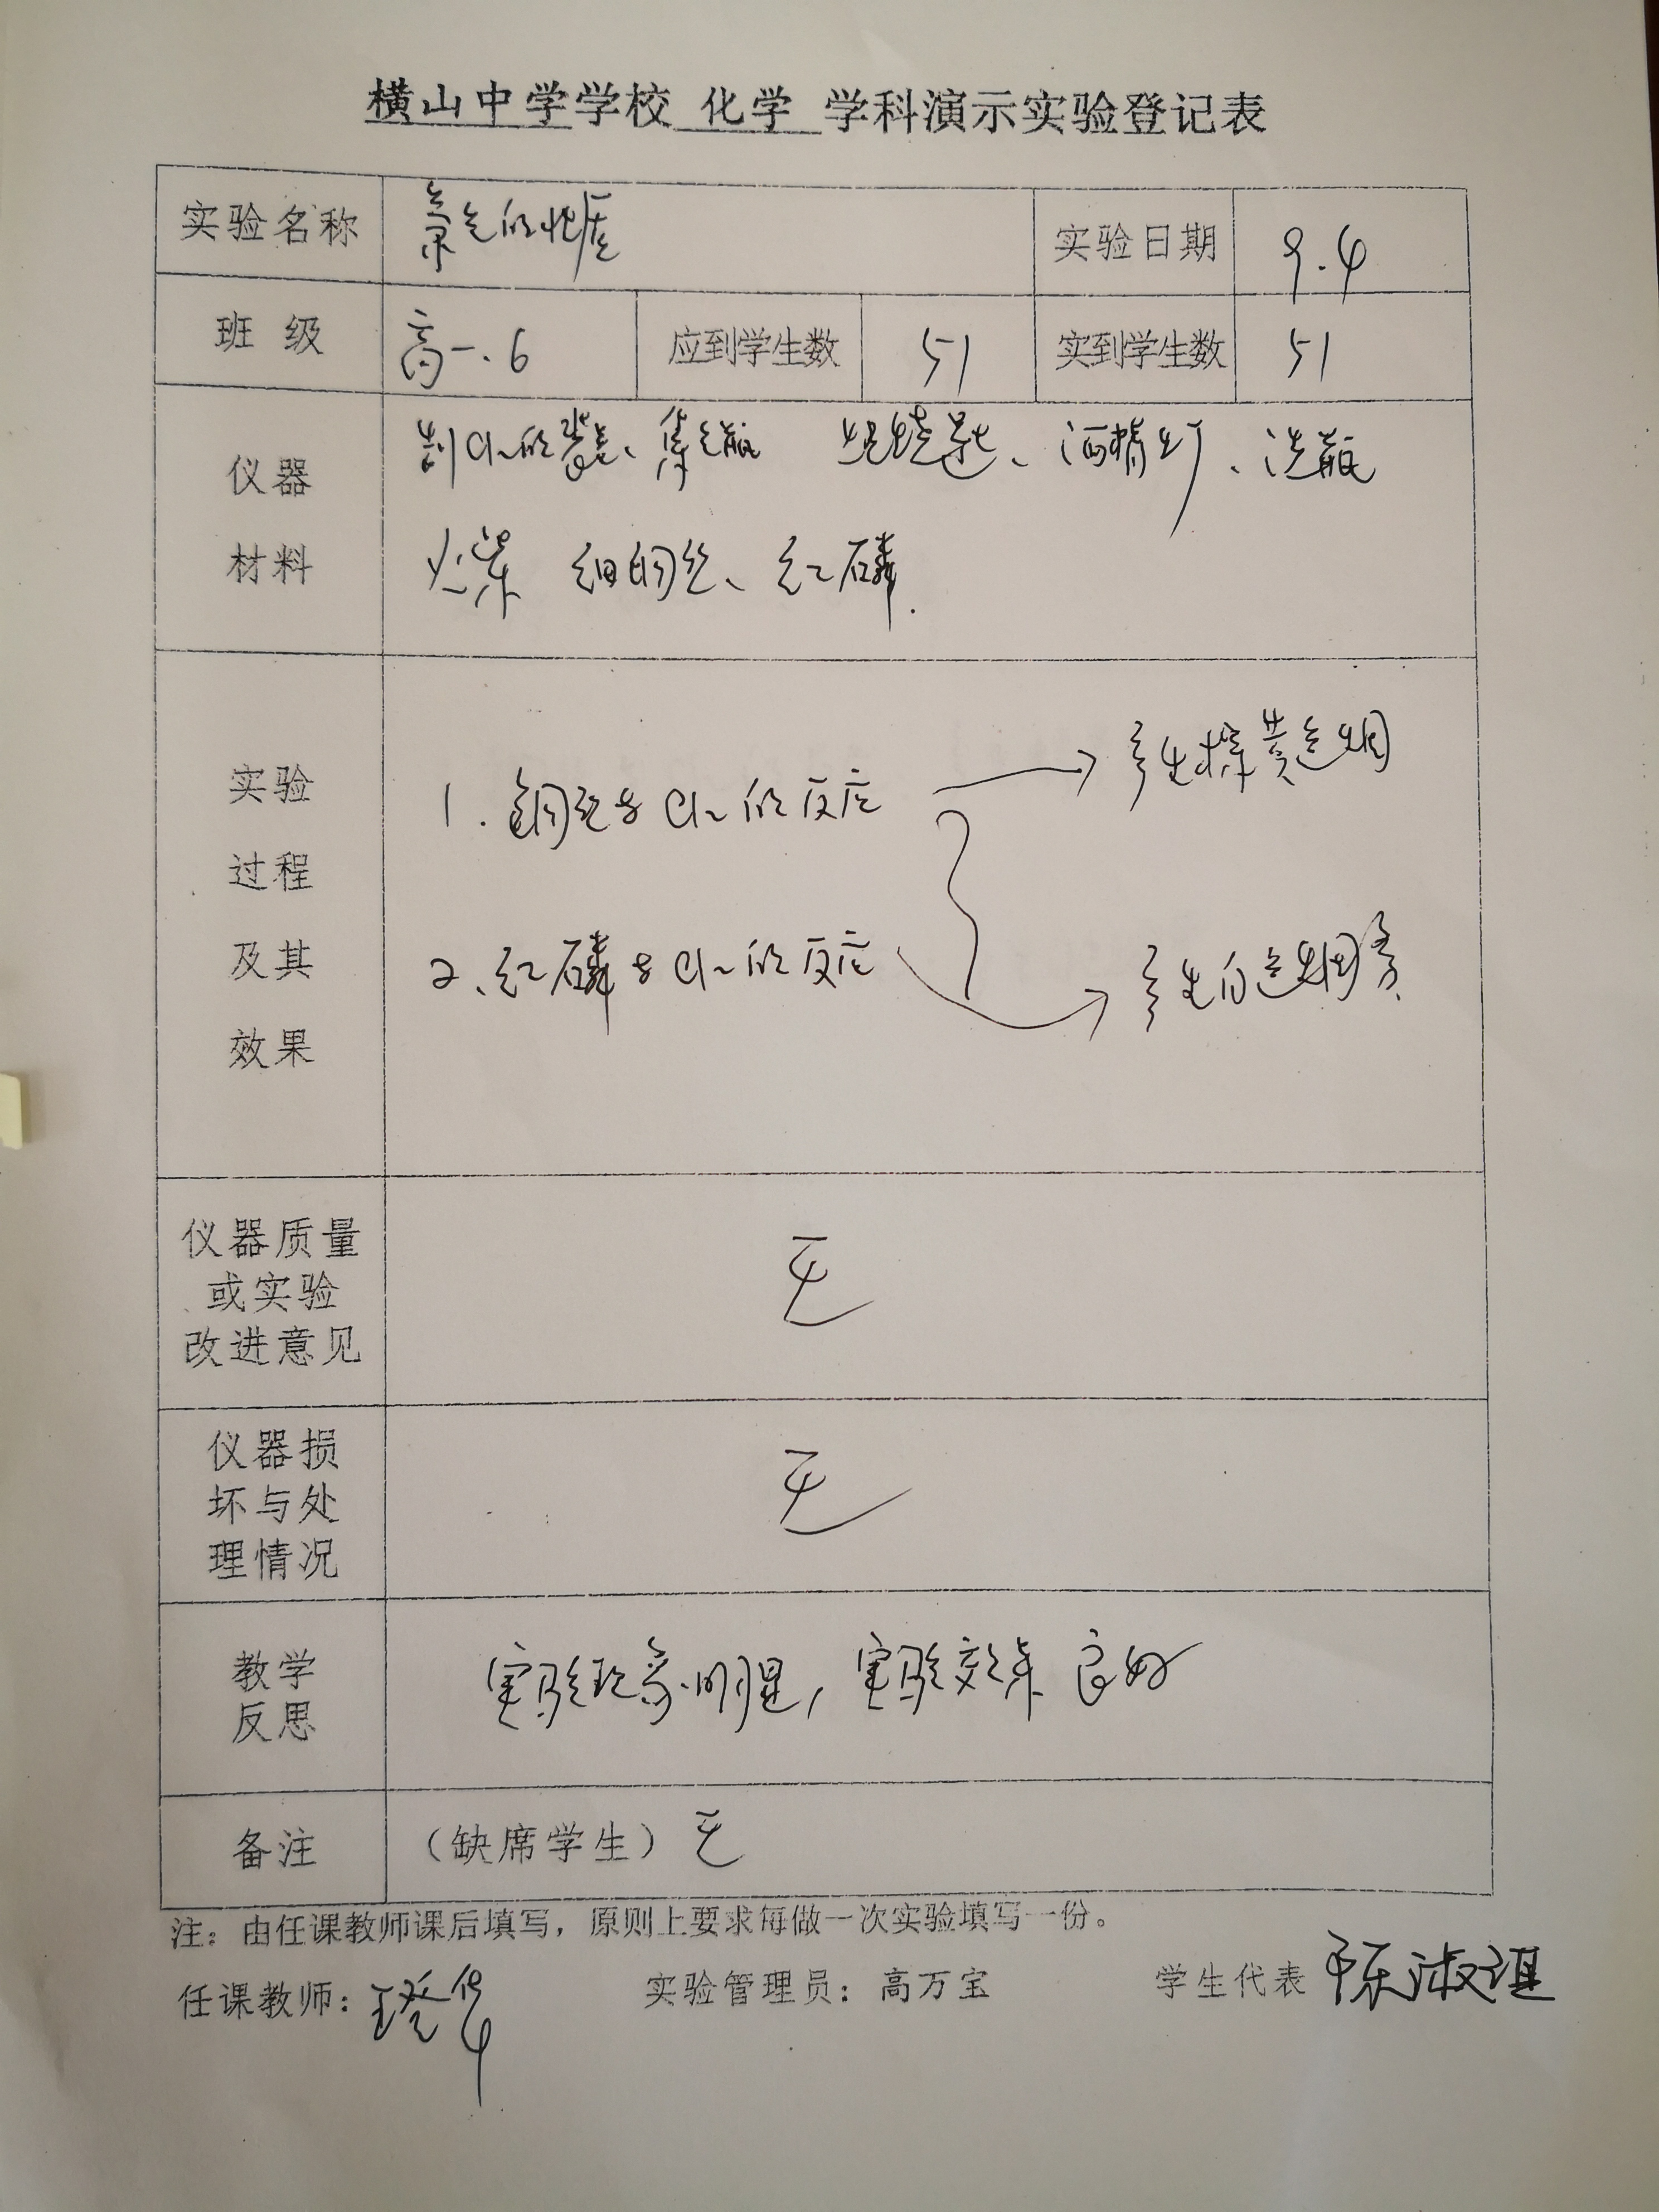 横山中学学校 化学 学科演示实验登记表
实验名称 氯气的性质 实验日期 9.4
班 级 高一.6 应到学生数 51 实到学生数 51
仪器 制Cl₂的装置、集气瓶 燃烧匙、酒精灯、洗瓶
材料 火柴 细铜丝、红磷.
实验
过程
及其
效果
1. 铜丝与Cl₂的反应 → 产生棕黄色烟
2、红磷与Cl₂的反应 → 产生白色烟雾
仪器质量
或实验
改进意见
无
仪器损
坏与处
理情况
无
教学
反思
实验现象明显,实验效果良好
备注 (缺席学生)无
注:由任课教师课后填写,原则上要求每做一次实验填写一份。
任课教师: 实验管理员:高万宝 学生代表 陈淑